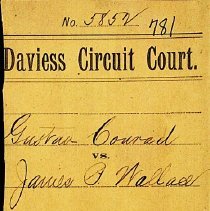 No. 5852
781
Daviess Circuit Court.
Gustav Conrad
vs.
James P. Wallace